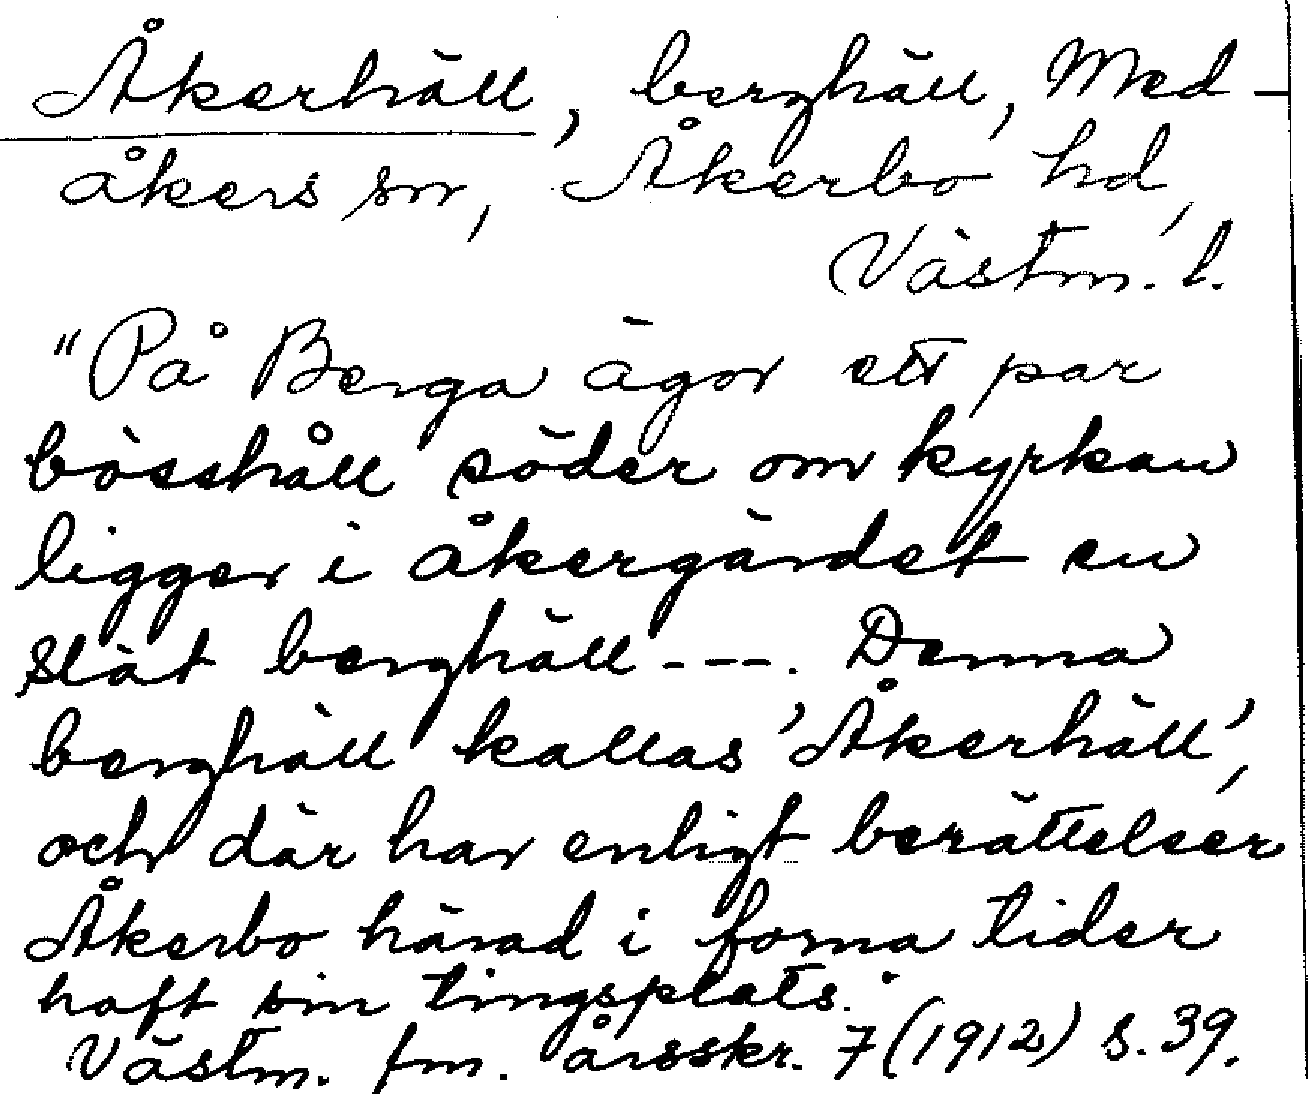 Åkerhäll, berghäll, Med-
åkers sn, Åkerbo hd,
Västm. l.
"På Berga ägor ett par
bösshåll söder om kyrkan
ligger i åkergärdet en
slät berghäll ---. Denna
berghäll kallas 'Åkerhäll',
och där har enligt berättelser
Åkerbo härad i forna tider
haft sin tingsplats."
Västm. fm. årsskr. 7 (1912) s. 39.